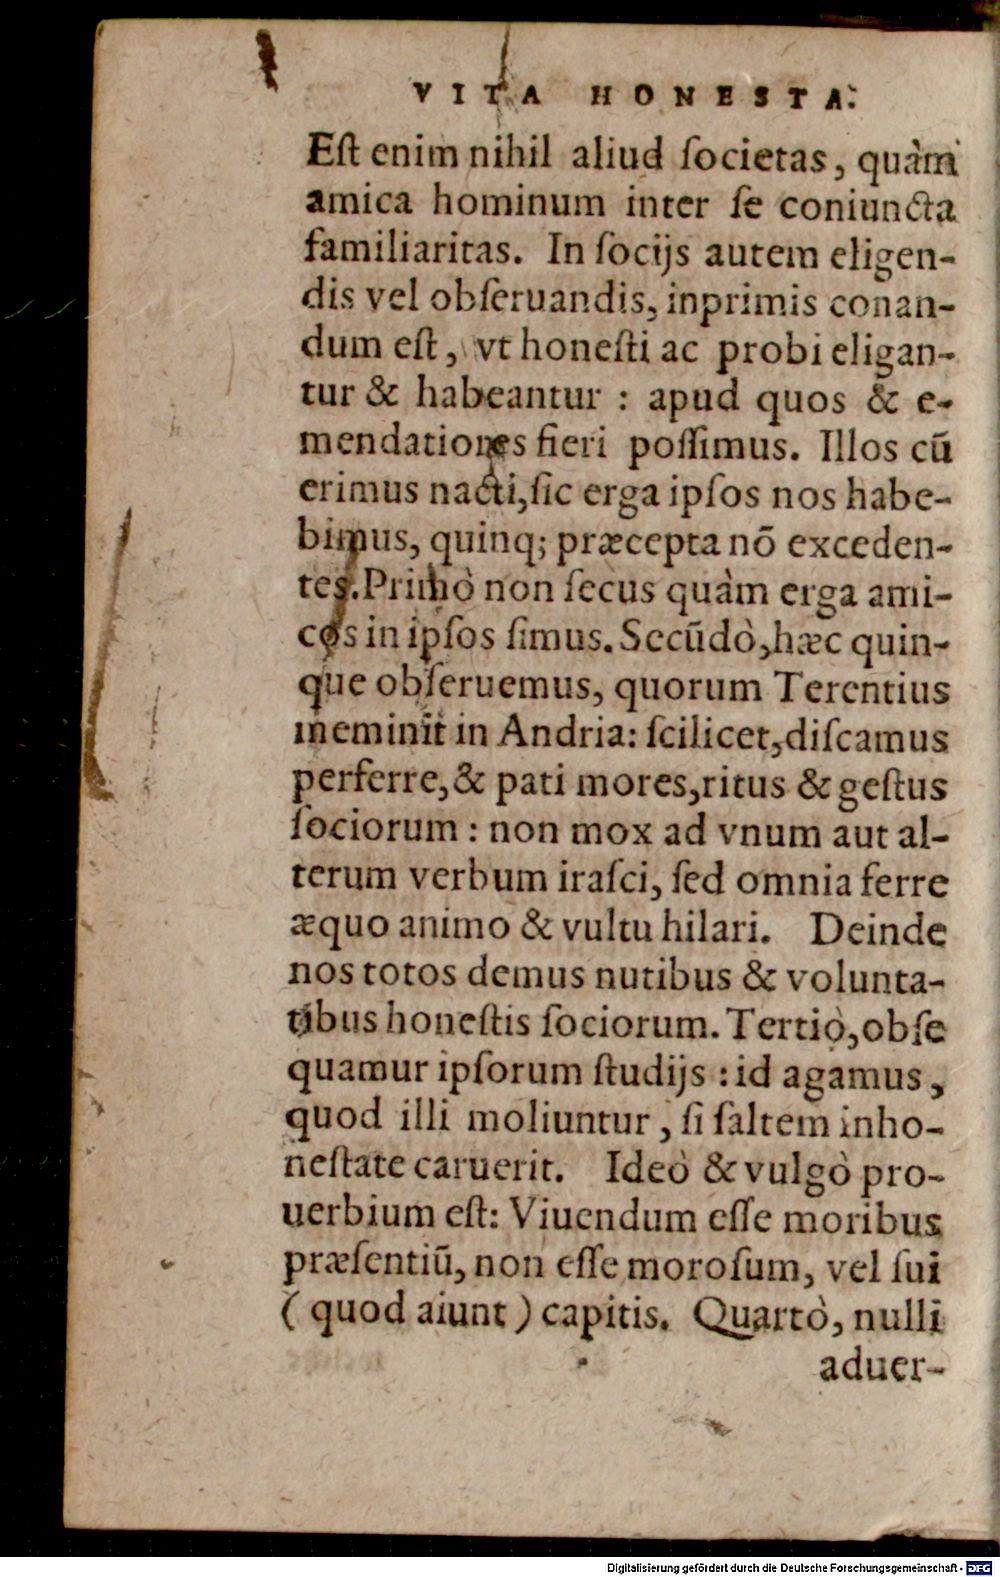 VITA HONESTA.
Eſt enim nihil aliud ſocietas, quàm
amica hominum inter ſe coniuncta
familiaritas. In ſocijs autem eligen-
dis vel obſeruandis, inprimis conan-
dum eſt, vt honeſti ac probi eligan-
tur & habeantur : apud quos & e-
mendationes fieri poſſimus. Illos cū
erimus nacti, ſic erga ipſos nos habe-
bimus, quinq; præcepta nō exceden-
tes. Primò non ſecus quàm erga ami-
cos in ipſos ſimus. Secūdò, hæc quin-
que obſeruemus, quorum Terentius
meminit in Andria: ſcilicet, diſcamus
perferre, & pati mores, ritus & geſtus
ſociorum : non mox ad vnum aut al-
terum verbum iraſci, ſed omnia ferre
æquo animo & vultu hilari. Deinde
nos totos demus nutibus & volunta-
tibus honeſtis ſociorum. Tertiò, obſe
quamur ipſorum ſtudijs : id agamus,
quod illi moliuntur, ſi ſaltem inho-
neſtate caruerit. Ideò & vulgò pro-
uerbium eſt: Viuendum eſſe moribus
præſentiū, non eſſe moroſum, vel ſui
( quod aiunt ) capitis. Quartò, nulli
aduer-
Digitalisierung gefördert durch die Deutsche Forschungsgemeinschaft - DFG